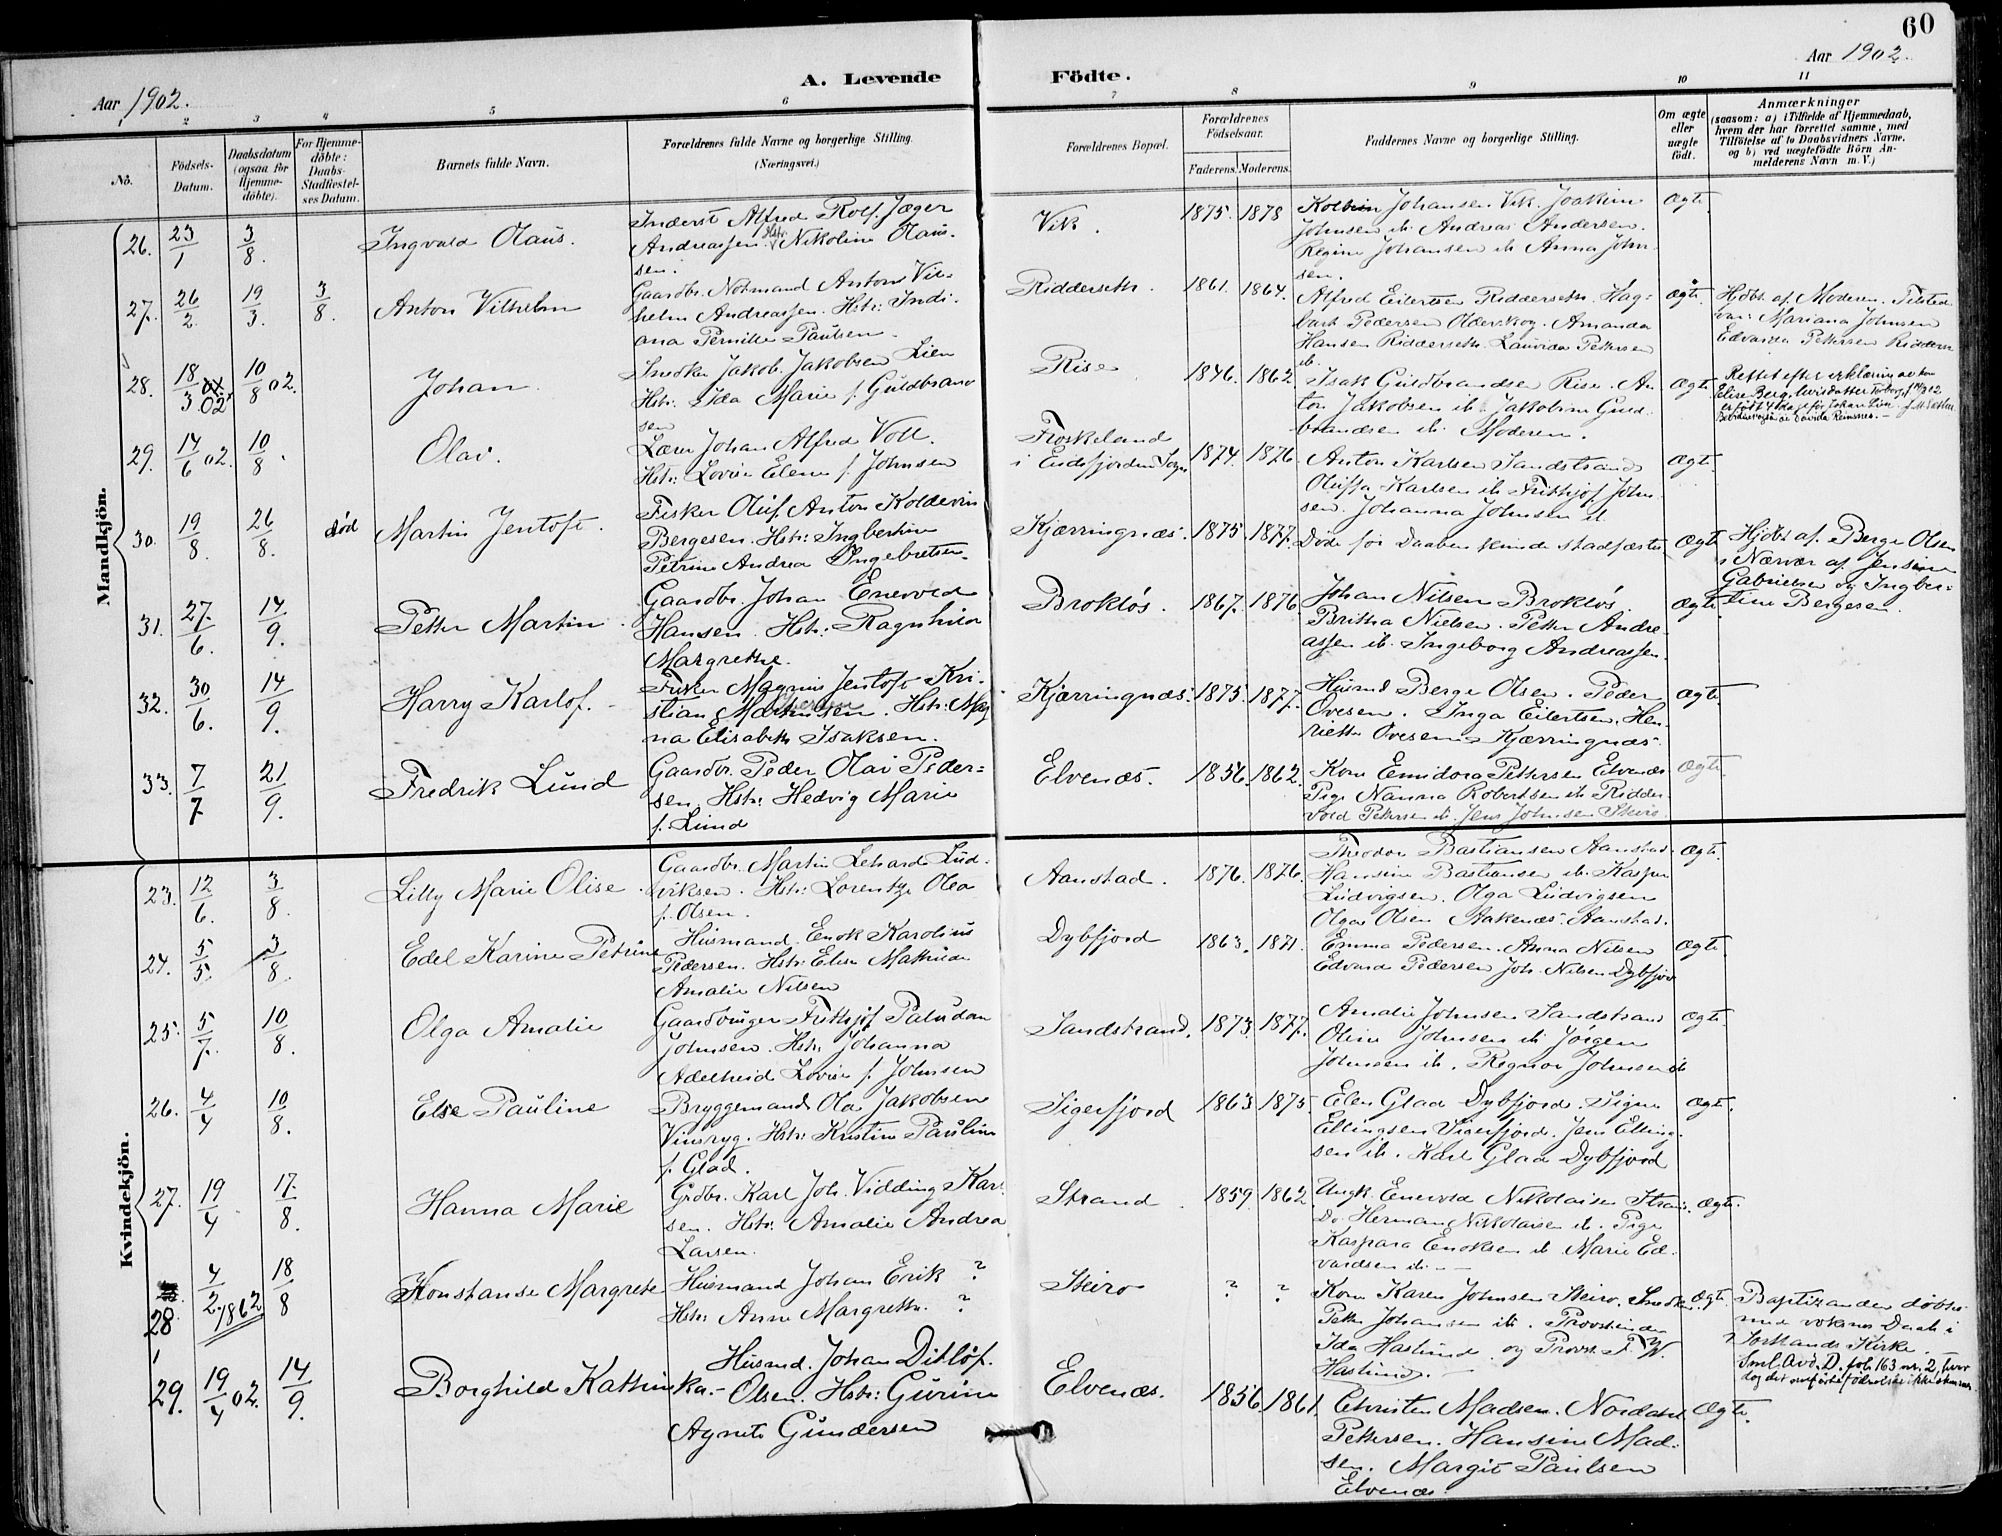 60
Aar 1902.
A. Levende
Födte.
Aar 1902.
1 2 3 4 5 6 7 8 9 10 11
No.
Födsels-
Datum.
Daabsdatum
(ogsaa for
Hjemme-
döbte).
For Hjemme-
döbte:
Daabs-
Stadfæstel-
ses Datum.
Barnets fulde Navn.
Forældrenes fulde Navne og borgerlige Stilling.
(Næringsvei.)
Forældrenes Bopæl.
Forældrenes
Födselsaar.
Faderens. Moderens.
Faddernes Navne og borgerlige Stilling.
Om ægte
eller
uægte
födt.
Anmærkninger
(saasom: a) i Tilfælde af Hjemmedaab,
hvem der har forrettet samme, med
Tilföielse af to Daabsvidners Navne.
og b) ved uægtefödte Börn An-
melderens Navn m. V.)
Mandkjön.
26. 23/1 3/8. Ingvald Olaus.
Inderst Alfred Rolf Jæger
Andreassen. Hstr. Nikoline Olaus-
sen.
Vik. 1875. 1878
Kolbein Johansen Vik. Joakim
Johnsen ib. Andreas Andersen.
Regine Johansen ib. Anna John-
sen.
Ægte.
27. 26/2. 19/3. 3/8. Anton Vilhelm
Gaardbr. Notmand Anton Vil-
helm Andreassen. Hstr: Indi-
ana Pernille Paulsen.
Ridderseth. 1861. 1864.
Alfred Eilertsen Ridderseth. Hag-
bart Pedersen Olderskog. Amanda
Hansen Ridderseth. Lauvida Pettersen
ib.
Ægte.
Hdbt. af Moderen. Tilsted
var: Mariana Johnsen
Edvarda Pettersen Ridders
28. 18/3 02 10/8 02. Johan.
Snedker Jakob Jakobsen Lien
Hstr: Ida Marie f. Guldbrand
sen
Rise 1846. 1862.
Isak Guldbrandsen Rise. An-
ton Jakobsen ib. Jakobine Guld-
brandsen ib. Moderen.
Ægte
Rettet efter erklæring av kone
Elise Berg, hvis datter
er født 4 dage før Johan Lien.
29. 17/6 02. 10/8. Olav.
Lærer Johan Alfred Voll.
Hstr: Lovise Elene f. Johnsen
Froskeland
i Eidsfjorden Sogn 1874. 1876.
Anton Karlsen Sandstrand
Oluffa Karlsen ib. Frithjof John-
sen. Johanna Johnsen ib.
Ægte.
30. 19/8. 26/8. død Martin Jentoft.
Fisker Oluf Anton Koldevin
Bergesen. Hstr: Ingbertine
Petrine Andrea Ingebretsen.
Kjærringnæs. 1875. 1877.
Døde før Daaben kunde stadfæstes
Ægte
Hjdbt. af Berge Olsen
i Nærvær af Jensine
Gabrielsen og Ingber-
tine Bergesen.
31. 27/6. 14/9. Petter Martin.
Gaardbr. Johan Enevold
Hansen. Hstr: Ragnhild
Margrethe.
Brokløs. 1867. 1876
Johan Nilsen Brokløs.
Britha Nielsen. Petter Andre-
assen ib. Ingeborg Andreassen.
Ægte.
32. 30/6. 14/9. Harry Karlof.
Fisker Magnus Jentoft Kri-
stian Martinsen. Hstr: Mag
na Elisabeth Isaksen.
Kjærringnæs. 1875. 1877.
Husmd Berge Olsen. Peder
Ovesen. Inga Eilertsen. Hen-
riette Ovesen Kjærringnæs.
Ægte.
33. 7/7. 21/9. Fredrik Lund
Gaardbr. Peder Olai Peder-
sen. Hstr: Hedvig Marie
f. Lund
Elvenæs. 1856. 1862.
Kone Emidora Pettersen Elvenæs
Pige Nanna Robertsen ib. Ridder-
vold Pettersen ib. Jens Johnsen Steiro
Ægte.
Kvindekjön.
23. 12/6. 3/8. Lilly Marie Olise.
Gaardbr. Martin Lehard Lud-
viksen. Hstr: Lorentze Olea
f. Olsen.
Aanstad. 1876. 1876.
Theodor Bastiansen Aanstad.
Hansine Bastiansen ib. Kaspar
Ludvigsen. Olga Ludvigsen
Olga Olsen Aakenæs. Aanstad.
Ægte.
24. 5/5. 3/8. Edel Karine Petrine
Husmand Enok Karolius
Pedersen. Hstr: Elise Mathilde
Amalie Nilsen
Dybfjord 1863. 1871.
Emma Pedersen. Anna Nilsen
Edvard Pedersen Joh. Nilsen Dybfjord
Ægte.
25. 5/7. 10/8. Olga Amalie
Gaardbruger Frithjof Paludan
Johnsen. Hstr: Johanna
Adelheid Lovise f. Johnsen
Sandstrand. 1873. 1877.
Amalie Johnsen Sandstrand
Oline Johnsen ib. Jørgen
Johnsen ib. Regnor Johnsen ib
Ægte.
26. 4/4 10/8. Else Pauline
Bryggemand Ole Jakobsen
Vinsryg. Hstr: Kristine Pauline
f. Glad.
Sigerfjord 1863 1875
Elen Glad Dybfjord. Signe
Ellingsen Sigerfjord. Jens Elling-
sen ib. Karl Glad Dybfjord
Ægte.
27. 19/4 17/8. Hanna Marie
Grdbr. Karl Joh. Vidding Karl-
sen. Hstr: Amalie Andrea
Larsen.
Strand. 1859. 1862.
Ungk. Enevold Nikolaisen Strand.
Do. Herman Nikolaisen ib. Pige
Kaspara Enoksen ib Marie Ed-
vardsen ib.
Ægte.
28 4/2. 1862 18/8 Konstanse Margrete
Husmand Johan Erik ?
Hstr: Anne Margrethe. ?
Steiro ? ?
Kone Karen Johnsen Steiro. Snedker
Petter Johansen ib. Provstinde
Ida Haslund og Provst F. W.
Haslund.
Ægte.
Baptizanden døbtes
med voksnes Daab i
Sortlands Kirke.
Sml. Avd. D. fol. 163 nr. 2, hvor
29. 19/4 02. 14/9. Borghild Kathinka.
Husmd. Johan Ditlöf.
Olsen. Hstr: Gurine
Agnete Gundersen
Elvenæs. 1856. 1861.
Christen Madsen. Nordahl
Pettersen. Hansine Mad-
sen. Margit Paulsen
Elvenæs.
Ægte.